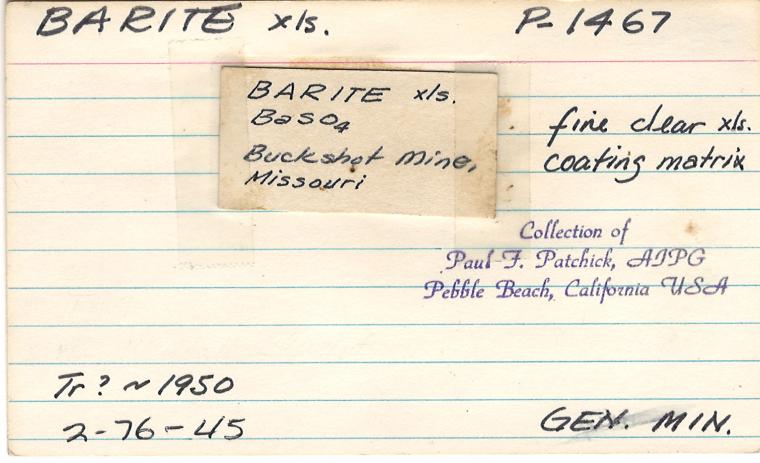 BARITE xls. P-1467
BARITE xls.
BaSO4
Buckshot Mine,
Missouri
fine clear xls.
coating matrix
Collection of
Paul F. Patchick, AIPG
Pebble Beach, California USA
Tr? ~ 1950
2-76-45
GEN. MIN.